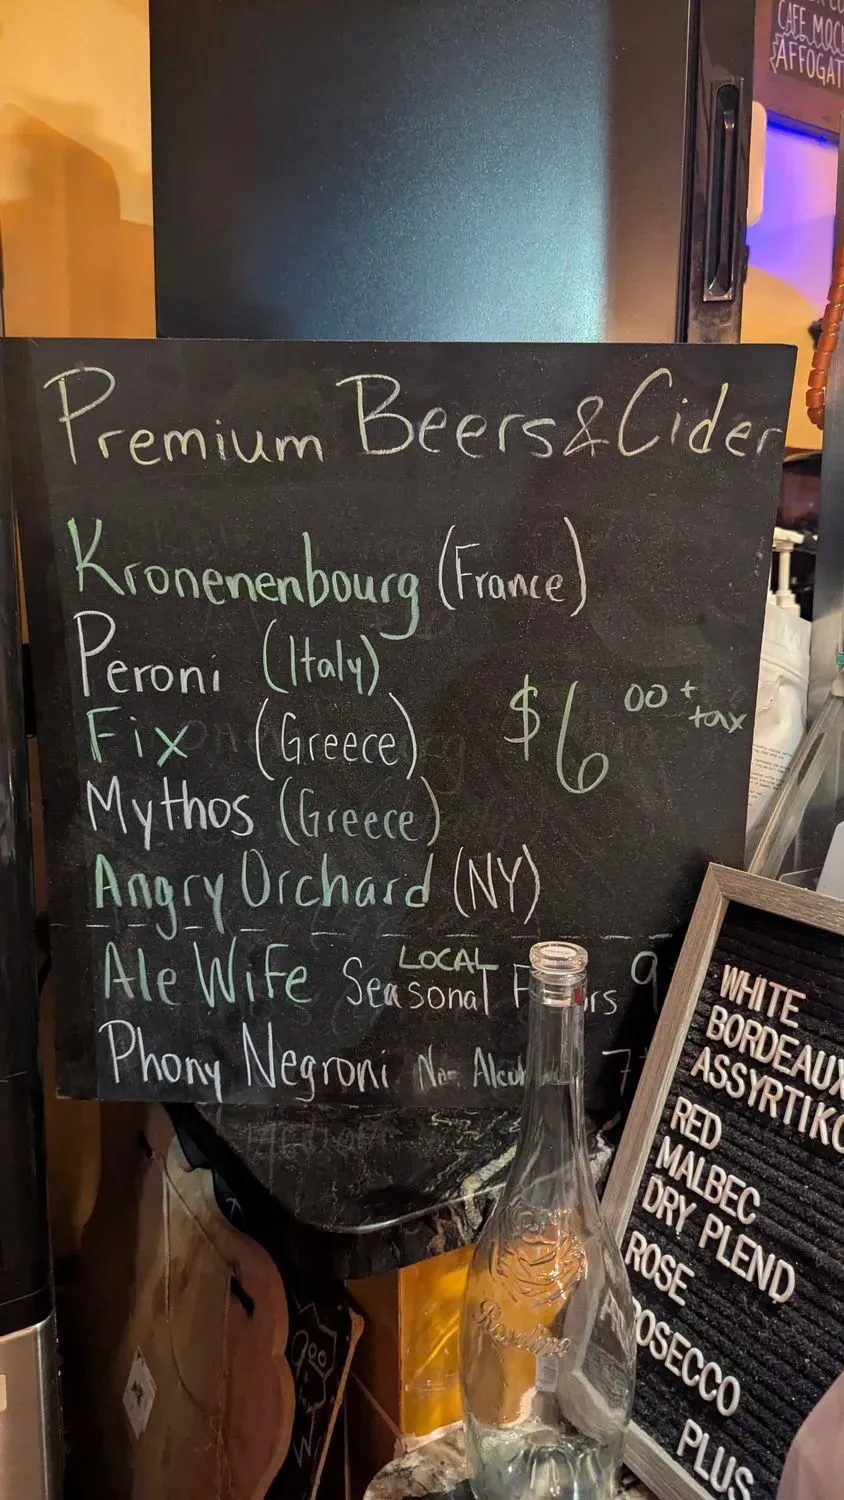 CAFE MOC
AFFOGAT
Premium Beers & Cider
Kronenenbourg (France)
Peroni (Italy)
Fix (Greece)
$6 00 + tax
Mythos (Greece)
Angry Orchard (NY)
Ale Wife LOCAL Seasonal F rs 9
Phony Negroni Non Alcoh 7
WHITE
BORDEAUX
ASSYRTIKO
RED
MALBEC
DRY PLEND
ROSE
ROSECCO
PLUS